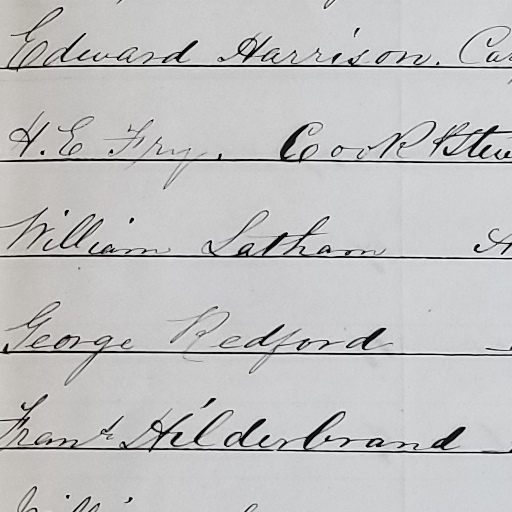 Edward Harrison. Ca
H. E Fry. Cook & Stew
William Latham A
George Redford
Frank Hilderbrand